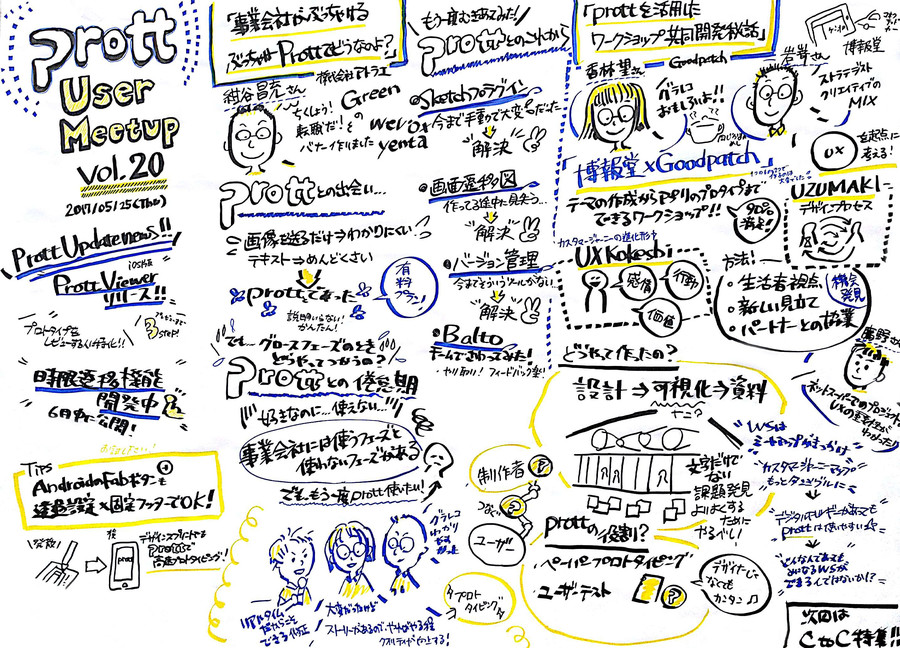 Prott
User
Meetup
vol.20
2017/05/25(Thu)
Prott Update news!!
iOS版
Prott Viewer
リリース!!
プロトタイプを
3 STEP!
時限遷移機能
開発中
6月末に公開!
Tips
AndroidのFabボタンも
遷移設定×固定フッターでOK!
デザインスプリントでも
prottで
高速プロトタイピング!
「事業会社からぶっちゃける
ぶっちゃけProttってどうなのよ?」
株式会社アトラエ
紺谷昌充さん
Green
転職だ!
wevox
yenta
バナー作りました
Prottとの出会い...
画像を送るだけ→わかりにくい
テキスト→めんどくさい
prottであった
有料プラン!
説明いらない!
かんたん!
でも...グロースフェーズのとき
どうやってつかうの?
Prottとの倦怠期
好きなのに...使えない...
事業会社には使うフェーズと
使わないフェーズがある
でも、もう一度prott使いたい!
リアルタイム
大変だったけど
もう一度むきあってみた!
Prottとのこれから
Sketchプラグイン
今まで手動で大変だった
→解決
画面遷移図
作ってる途中で見失う...
→解決
バージョン管理
→解決
Balto
チームでさわってみた!
「prottを活用した
ワークショップ共同開発秘話」
香林望さん
Goodpatch
グラレコ
おもしろいよ!!
岩嵜さん
博報堂
ストラテジスト
クリエイティブの
MIX
UX
を起点に
考える!
博報堂×Goodpatch
テーマの作成からアプリのプロトタイプまで
できるワークショップ!!
90%
満足!
UZUMAKI
デザインプロセス
カスタマージャーニーの進化形!?
UX Kokeshi
感情
行動
価値
方法!
・生活者視点
・新しい見立て
・パートナーとの協業
機会
発見
どうやって作ったの?
設計⇒可視化⇒資料
文字だけで
ない
課題発見
よりよくする
ために
やるべし!
制作者
つなぐ
ユーザー
prottの役割?
ペーパープロトタイピング
ユーザーテスト
プロト
タイピング
デザイナーじゃ
なくても
カンタン♪
ネットスーパーでのプロジェクト
UXの重要性が
わかった!
WSは
カスタマージャーニーマップを
もっとタンジブルに
デジタルでもリアルがあっても
prottは使いやすい☆
どんなんであっても
できるんではないか!?
次回は
CtoC特集!!